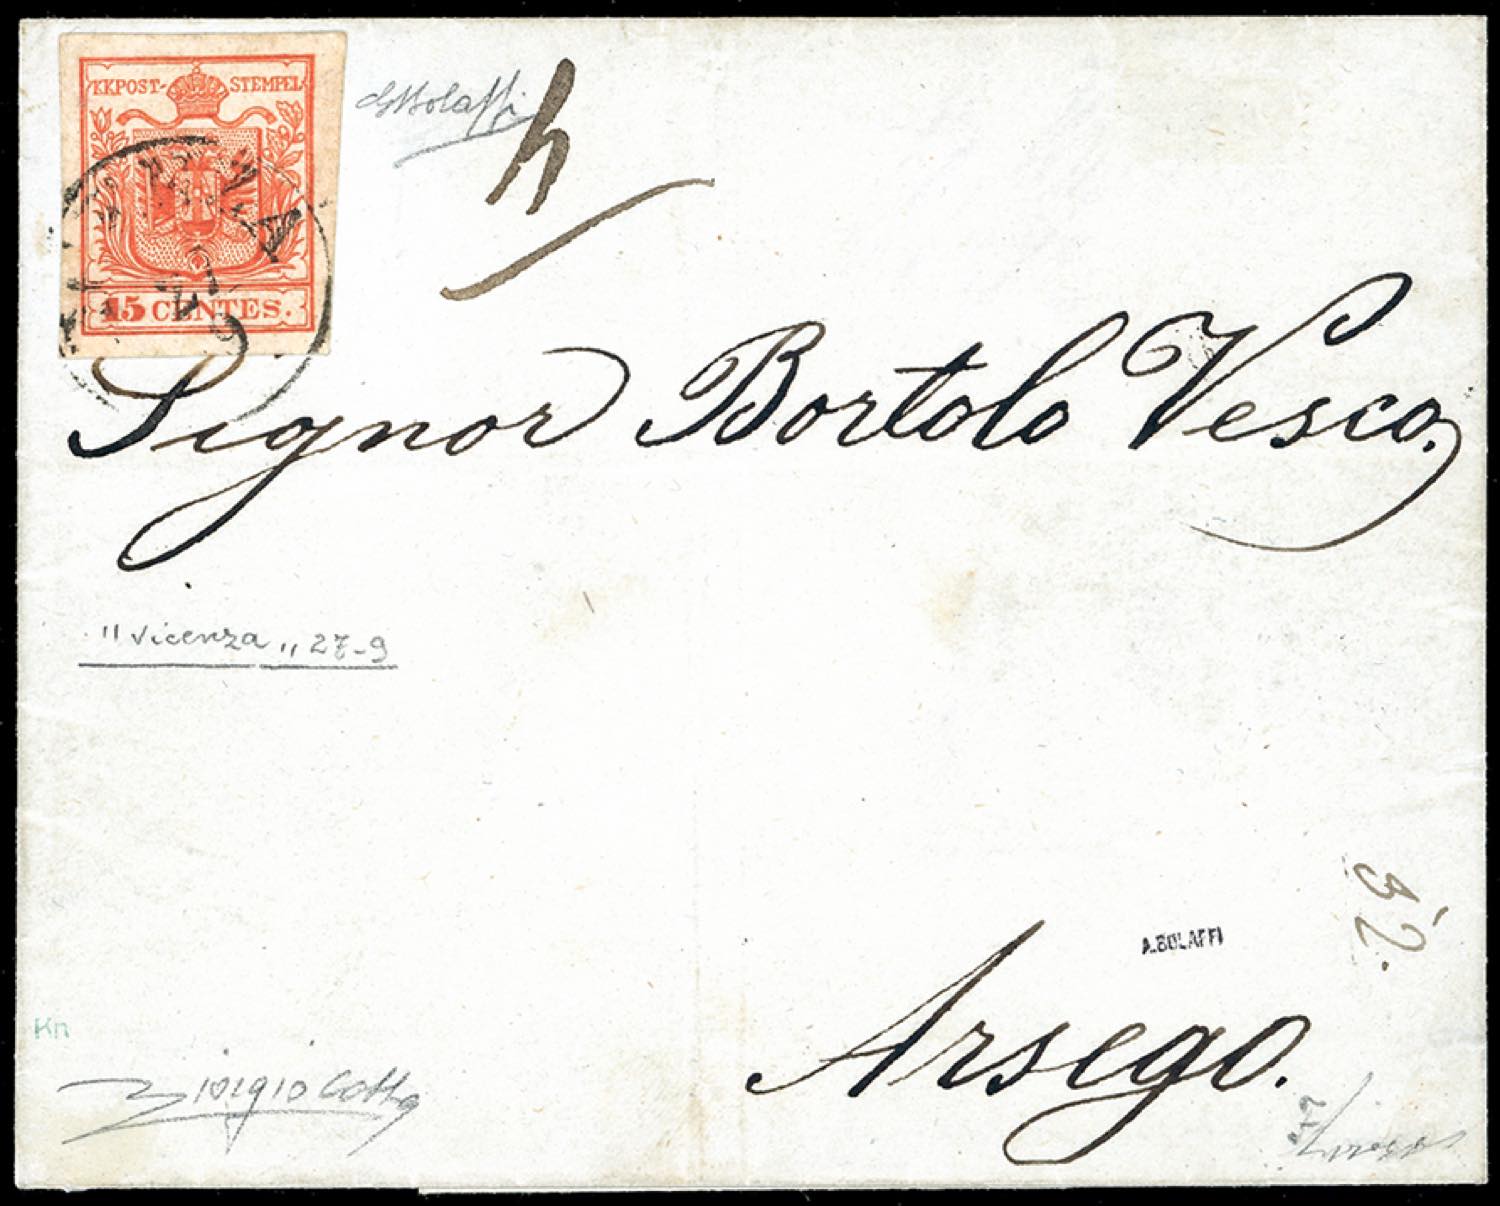 KKPOST-STEMPEL
15 CENTES.
GBolaffi
Signor Bortolo Vesco.
"Vicenza" 27-9
32.
A.BOLAFFI
Arsego.
Kn
Giorgio Colla